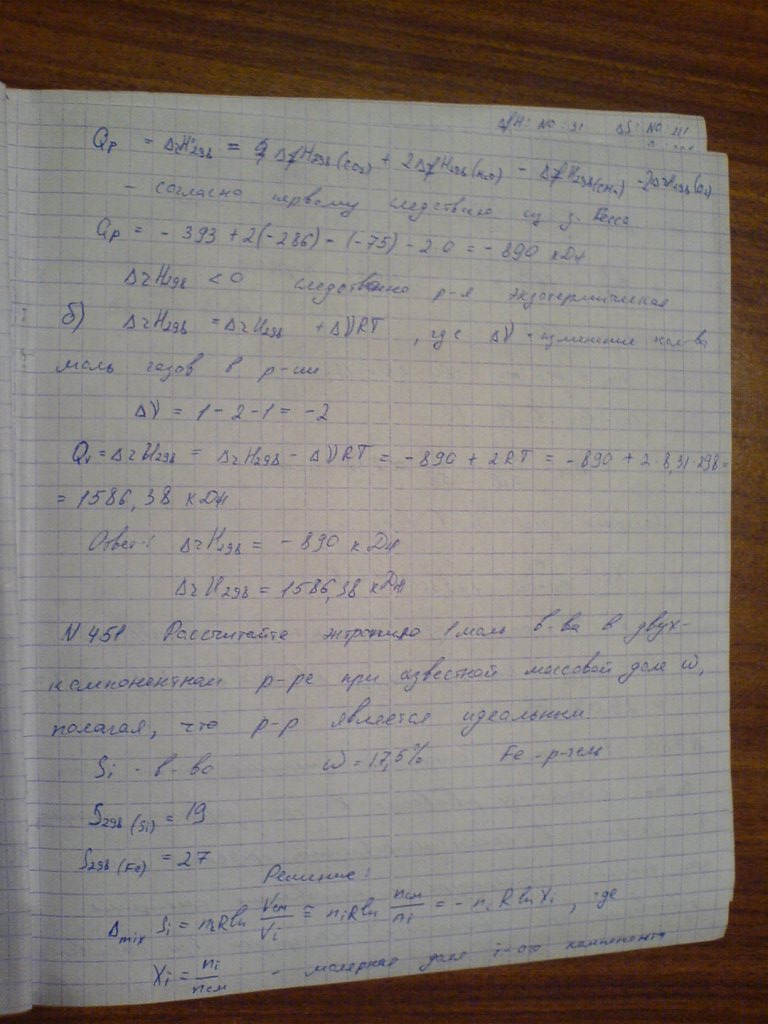 ΔfH: NO: 91 ΔS: NO: 211
Qp = ΔrH°298 = ΔfH298(CO2) + 2ΔfH298(H2O) - ΔfH298(CH4) - 2ΔfH298(O2)
- согласно первому следствию из з. Гесса
Qp = - 393 + 2(-286) - (-75) - 2·0 = - 890 кДж
ΔrH298 < 0 следственно р-я экзотермическая
б) ΔrH298 = ΔrU298 + ΔνRT , где Δν - изменение кол-ва
моль газов в р-ии
Δν = 1 - 2 - 1 = -2
Qv = ΔrU298 = ΔrH298 - ΔνRT = - 890 + 2RT = - 890 + 2·8,31·298 =
= 1586,38 кДж
Ответ: ΔrH298 = - 890 кДж
ΔrU298 = 1586,38 кДж
N 451 Рассчитайте энтропию 1 моль в-ва в двух-
компонентном р-ре при известной массовой доле ω,
полагая, что р-р является идеальным.
Si - в-во ω = 17,5% Fe - р-тель
S298 (Si) = 19
S298 (Fe) = 27
Решение:
Δmix Si = niRln Vсм/Vi = niRln nсм/ni = - niRlnXi , где
Xi = ni/nсм - молярная доля i-ого компонента